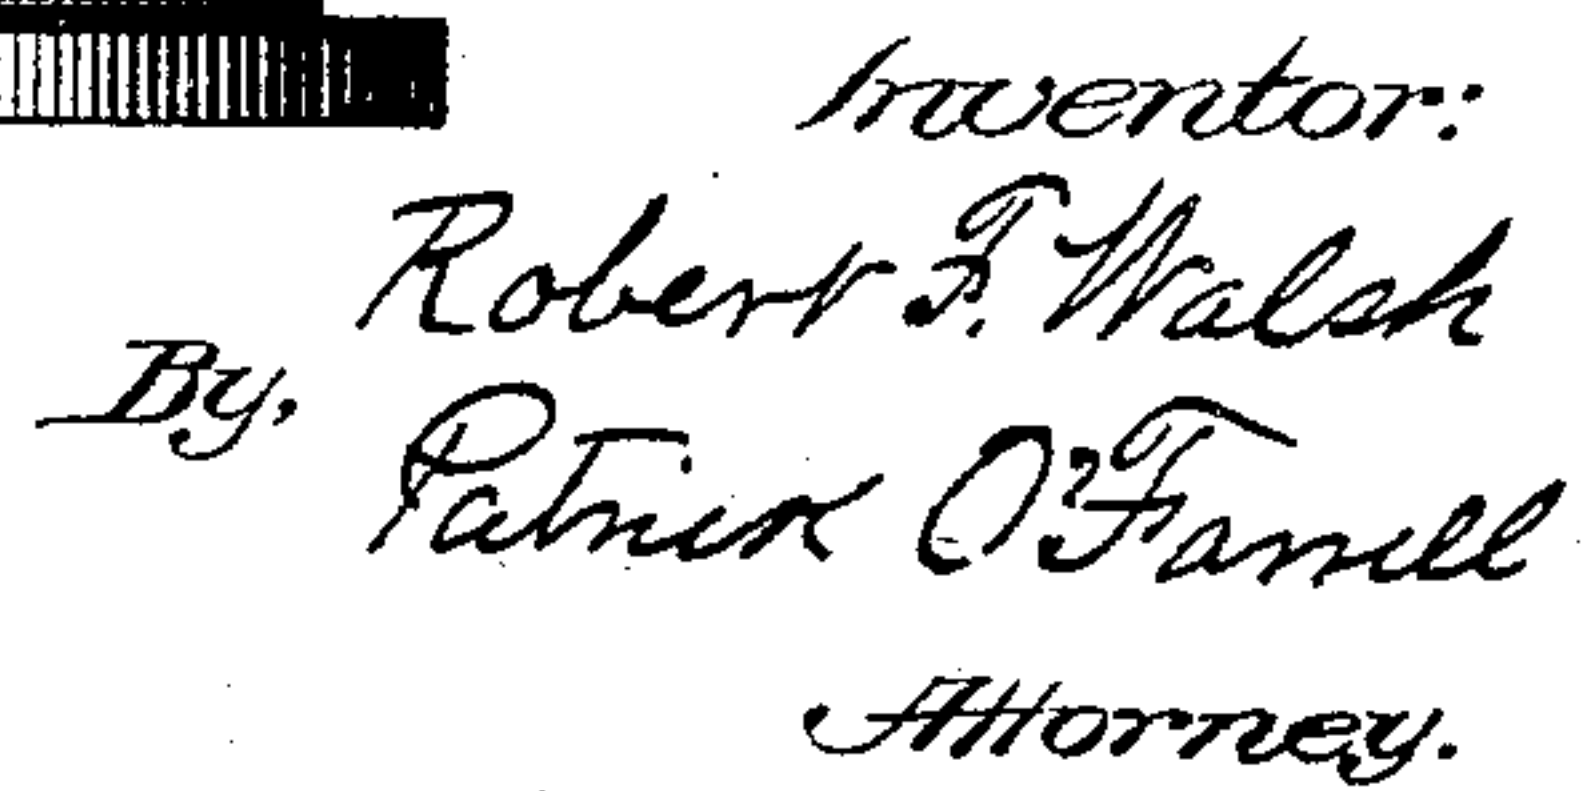 Inventor:
Robert F. Walsh
By,
Patrick O'Farrell
Attorney.